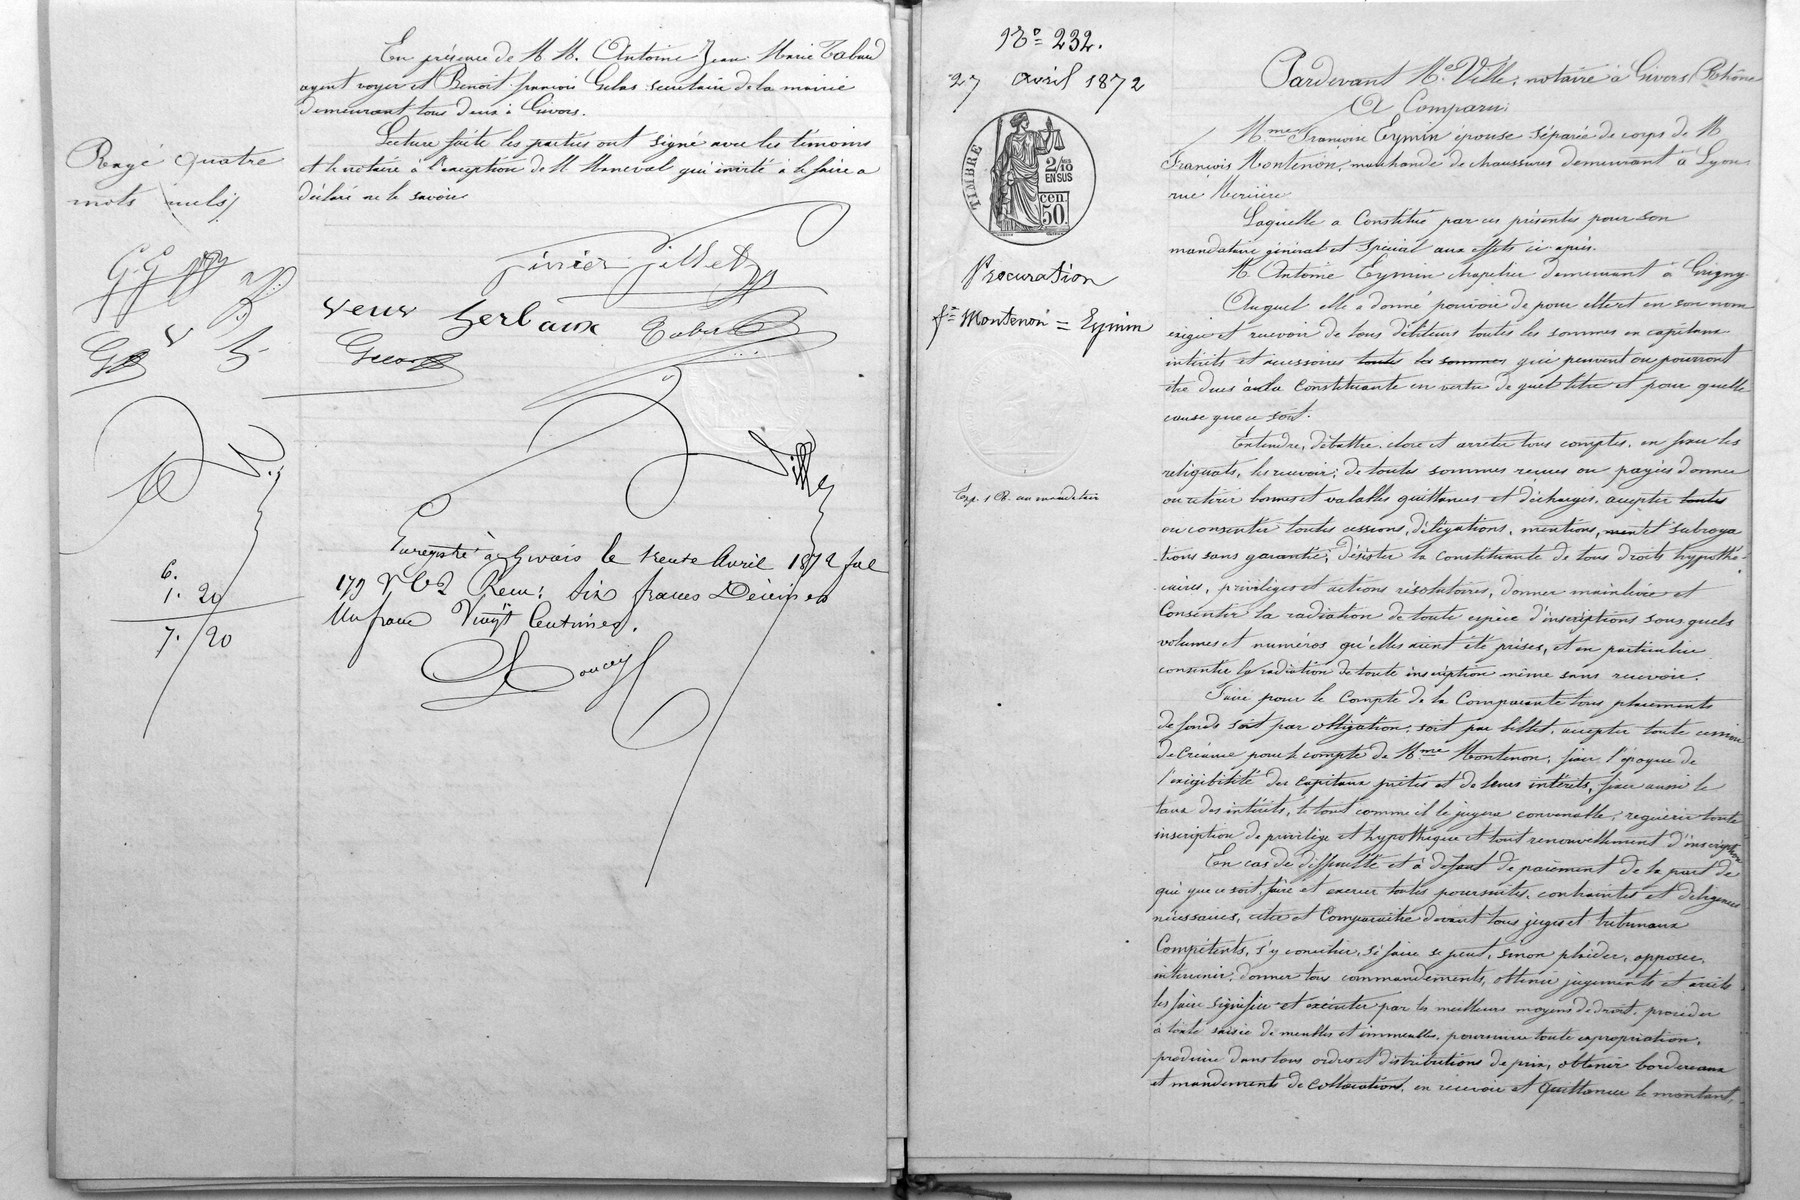 En présence de M. M. Antoine Jean Marie Tabard
agent voyer et Benoit françois Gelas secrétaire de la mairie
demeurant tous deux à Givors.
Lecture faite les parties ont signé avec les témoins
et le notaire à l'exception de M. Maneval qui invité à le faire a
déclaré ne le savoir
Rayé quatre
mots nuls
veuve
6.
1. 20
7. 20
Enregistré à Givors le trente Avril 1872 fol
179 Reçu: Six francs Décimes
Un franc Vingt Centimes.
No 232.
27 avril 1872
TIMBRE
2/10
EN SUS
cen.
50.
Procuration
fe Montenon = Eymin
Exp. 1 R. au mandataire
Pardevant Me Ville, notaire à Givors (Rhône
A Comparu:
Mme Françoise Eymin épouse séparée de corps de M.
François Montenon, marchande de chaussures demeurant à Lyon
rue
Laquelle a Constitué par ces présentes pour son
mandataire général et spécial aux effets ci après.
M. Antoine Eymin chapelier demeurant à Grigny
Auquel elle a donné pouvoir de pour elle et en son nom
exiger et recevoir de tous débiteurs toutes les sommes en capitaux
intérêts et accessoires toutes les sommes qui peuvent ou pourront
être dues à la Constituante en vertu de quel titre et pour quelle
cause que ce soit.
Entendre, débattre, clore et arrêter tous comptes, en fixer les
reliquats, les recevoir; de toutes sommes reçues ou payées donner
ou retirer bonnes et valables quittances et décharges, accepter toutes
ou consentir toutes cessions, délégations, mentions, et subroga
tions sans garantie; désister la constituante de tous droits hypothé-
caires, privilèges et actions résolutoires, donner mainlevée et
Consentir la radiation de toute espèce d'inscriptions sous quels
volumes et numéros qu'elles aient été prises, et en particulier
consentir la radiation de toute inscription même sans recevoir.
Faire pour le Compte de la Comparante tous placements
de fonds soit par obligation, soit par billet, accepter toute cession
de Créance pour le compte de Mme Montenon, fixer l'époque de
l'exigibilité des capitaux prêtés et de leurs intérêts, fixer aussi le
taux des intérêts, le tout comme il le jugera convenable, requérir toute
inscription de privilège et hypothèque et tout renouvellement d'inscription
En cas de difficulté et à défaut de paiement de la part de
qui que ce soit, faire et exercer toutes poursuites, contraintes et diligences
nécessaires, citer et Comparaître devant tous juges et tribunaux
Compétents, s'y concilier, si faire se peut, sinon plaider, opposer,
intervenir, donner tous commandements, obtenir jugements et arrêts
les faire signifier et exécuter par les meilleurs moyens de droit, procéder
à toute saisie de meubles et immeubles, poursuivre toute expropriation,
produire dans tous ordres et distributions de prix, obtenir bordereaux
et mandements de collocation, en recevoir et quittancer le montant,